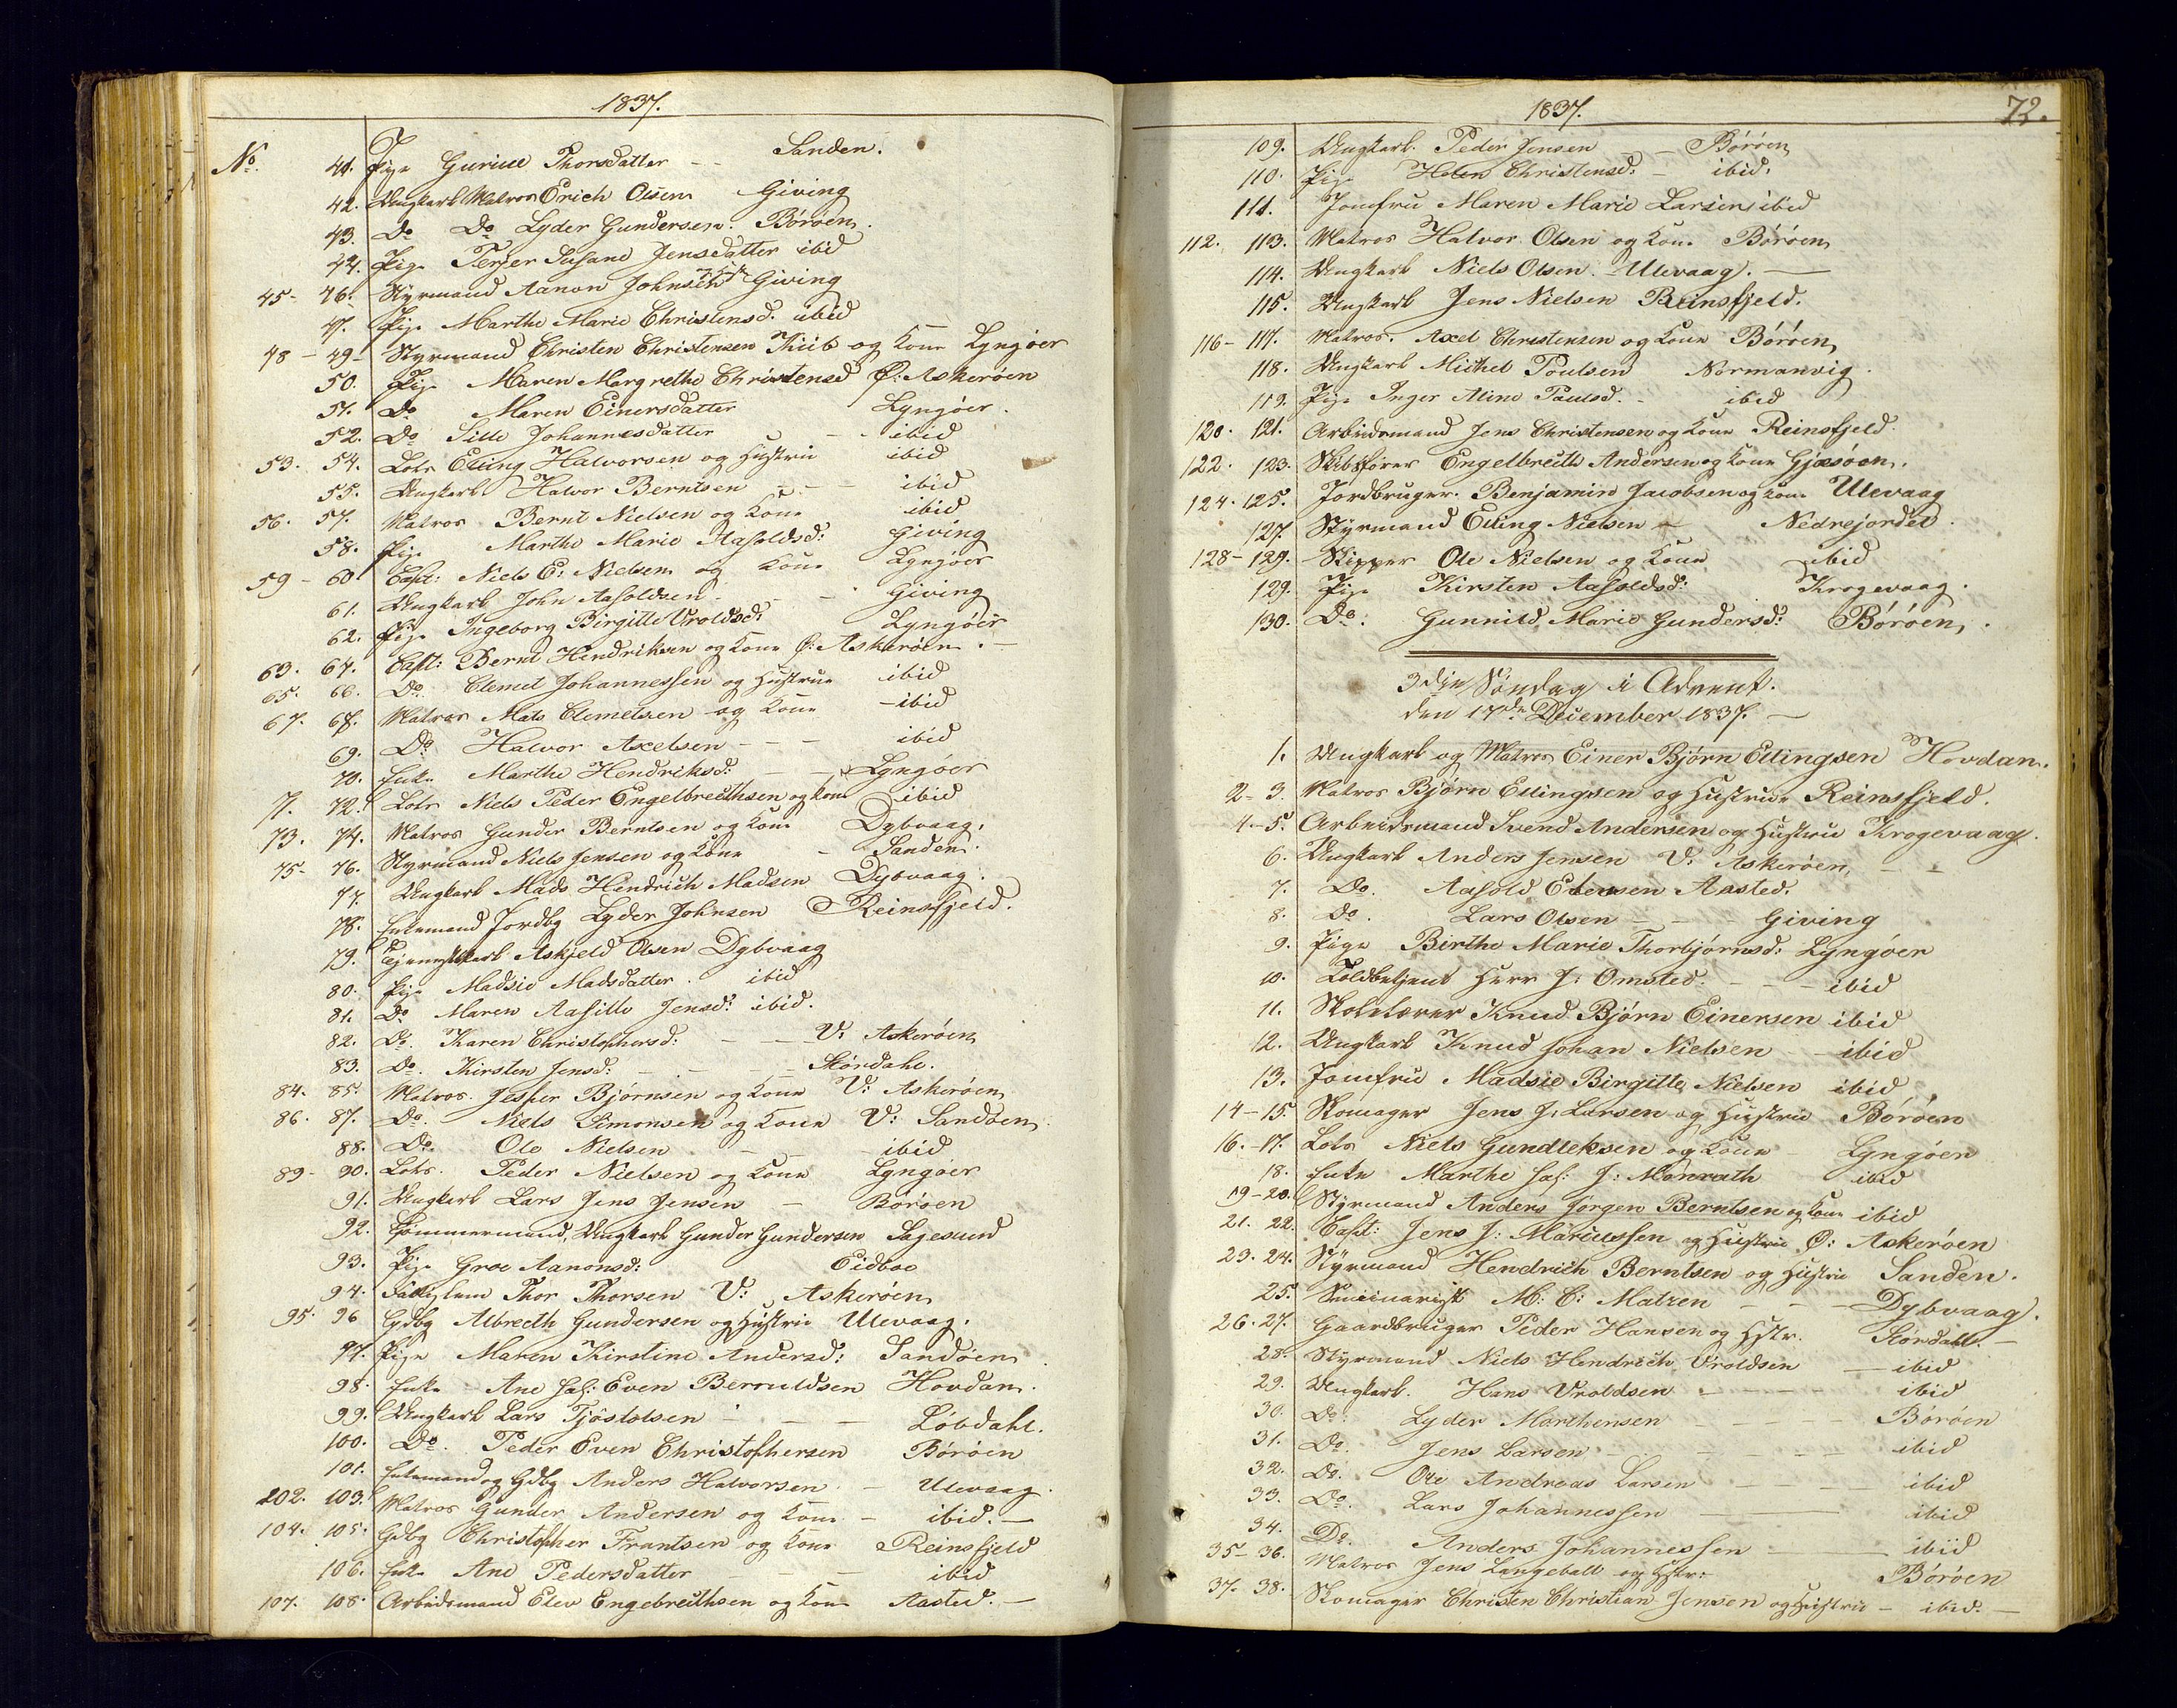 1837.
No. 41. Pige Guriue Thorsdatter - - Sanden.
42. Ungkarl Matros Erich Olsen Giving
43. Do Do Lyder Gundersen. Böröen.
44. Pige Terjer Susane Jensdatter ibid
45- 46. Styrmand Aanon Johnsen Giving
47. Pige Marthe Marie Christensd. ibid
48 - 49 - Styrmand Christen Christensen Thiis og Kone Lyngöer
50. Pige Maren Margrethe Christensd Ö: Askeröen
51. Do Maren Einersdatter Lyngöer.
52. Do Sille Johannesdatter - - ibid
53. 54. Lots Elling Halvorsen og Hustrue ibid
55. Ungkarl Halvor Berntsen - - - ibid
56. 57. Matros Bernt Nielsen og Kone ibid
58. Pige Marthe Marie Aasoldsd: Giving
59 - 60. Capt: Niels E: Nielsen og Kone Lyngöer
61. Ungkarl John Aasoldsen - - - Giving
62. Pige Ingeborg Birgitte Uroldsd: Lyngöer
63. 64. Capt: Bernt Hendriksen og Kone Ö: Askeröen. -
65. 66. Do Clemet Johannessen og Hustrue ibid
67. 68. Matros Mats Clemetsen og Kone - ibid
69. Do Halvor Axelsen - - - ibid
70. Enke Marthe Hendriksd: - - Lyngöer
71. 72. Lots Niels Peder Engelbrecthsen og Kone ibid
73. 74. Matros Gunder Berntsen og Kone Dybvaag.
75- 76. Styrmand Niels Jensen og Kone - Sanden.
77. Ungkarl Mads Hendrich Madsen Dybvaag.
78. Enkemand Jordbg Lyder Johnsen Reinsfjeld.
79. Tjenestekarl Askjeld Olsen Dybvaag
80. Pige Madsie Madsdatter. ibid
81. Do Maren Aasille Jensd: ibid.
82. Do. Karen Christophersd: - - V: Askeröen
83. Do. Kirsten Jensd: - - - Skördahl.
84. 85. Matros. Jesper Björnsen og Kone V: Askeröen
86. 87. Do. Niels Simonsen og Kone V: Sandöen
88. Do. Ole Nielsen - - ibid
89- 90. Lots. Peder Nielsen og Kone Lyngöer
91. Ungkarl Lars Jens Jensen - Böröen
92. Tömmermand, Ungkarl Gunder Gundersen Sagesund
93. Pige Groe Aanonsd: Eidboe
94. Thor Thorsen V: Askeröen
95. 96 Gdbg Albrecth Gundersen og Hustrue Ulevaag.
97. Pige Maren Kirstine Andersd: Sandöen
98. Enke Ane Sal: Even Berouldsen Hovdan.
99. Ungkarl Lars Tjöstolsen - - - Lövdahl.
100. Do. Peder Even Christophersen Böröen
101. Enkemand og Gdbg Anders Halvorsen - Ulevaag.
102. 103. Matros Gunder Andersen og Kone - ibid. -
104. 105. Gdbg Christopher Frantsen og Kone Reinsfjeld
106. Enke Ane Pedersdatter - - - ibid
107. 108. Arbeidsmand Elev Engebrecthsen og Kone Aasted. -
1837. 72.
109. Ungkarl. Peder Jensen - - Böröen
110. Pige Helen Christensd: - ibid.
111. Jomfru Maren Marie Larsen ibid
112. 113. Matros Halvor Olsen og Kone Böröen
114. Ungkarl Niels Olsen. Ulevaag. -
115. Ungkarl Jens Nielsen Reinsfjeld.
116- 117. Matros. Axel Christensen og Kone Böröen
118. Ungkarl Michel Poulsen Normanvig.
119. Pige Inger Aline Paulsd. - ibid
120. 121. Arbeidsmand Jens Christensen og Kone Reinsfjeld.
122. 123. Skibsförer Engelbrecth Andersen og Kone Gjæsöen.
124. 125. Jordbruger. Benjamin Jacobsen og Kone Ulevaag
127. Styrmand Elling Nielsen - Nedrejordet.
128- 129. Skipper Ole Nielsen og Kone ibid
129. Pige Kirsten Aasoldsd: Krogevaag.
130. Do. Gunnild Marie Gundersd: Böröen.
3die Söndag i Advent.
den 17de December 1837. -
1. Ungkarl og Matros Einer Bjørn Ellingsen Hovdan.
2- 3. Matros Bjørn Ellingsen og Hustrue Reinsfjeld.
4- 5. Arbeidsmand Svend Andersen og Hustrue Krogevaag.
6. Ungkarl Anders Jensen V: Askeröen, - -
7. Do. Aasold Edensen Aasted.
8. Do. Lars Olsen - - Giving
9. Pige Birthe Marie Thorbjørnsd: Lyngöer
10. Toldbetjent Herr J: Omsted. - - - ibid
11. Skolelærer Knud Bjørn Einersen ibid
12. Ungkarl Knud Johan Nielsen - ibid
13. Jomfrue Madsie Birgitte Nielsen ibid
14- 15. Skomager Jens J: Larsen og Hustrue Böröen
16.- 17. Lots Niels Gundleksen og Kone - Lyngöer
18. Enke Marthe Sal: J: Monrath ibid
19- 20. Styrmand Anders Jörgen Berntsen og Kone ibid
21. 22. Capt: Jens J: Mariussen og Hustrue Ö: Askeröen
23. 24. Styrmand Hendrich Berntsen og Hustrue Sanden.
25. Seminarist M: C: Matzen - - - Dybvaag.
26. 27. Gaardbruger Peder Hansen og Hstr. Skördahl. -
28. Styrmand Niels Hendrich Uroldsen - ibid
29. Ungkarl. Hans Uroldsen - - - ibid
30. Do. Lyder Marthensen - - - - Böröen
31. Do. Jens Larsen - - - - - ibid
32. Do. Ole Andreas Larsen - - - - ibid
33. Do. Lars Johannessen - ibid
34. Do. Anders Johannessen - ibid
35- 36. Matros Jens Langeball og Hstr: Böröen
37- 38. Skomager Christen Christian Jensen og Hustrue - ibid. -